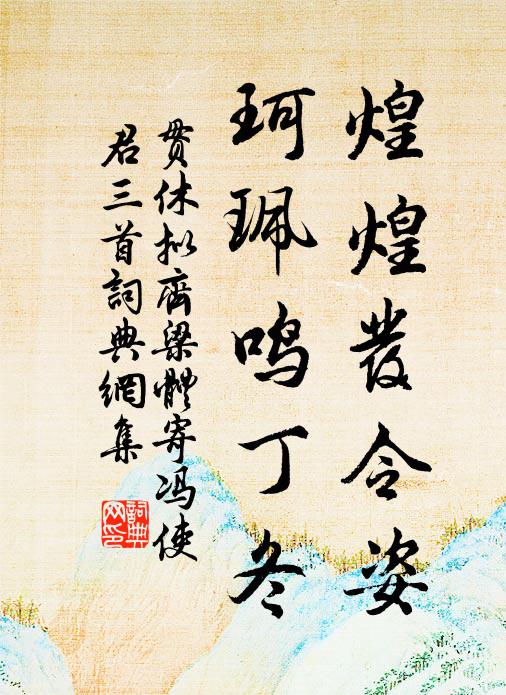 煌煌發令姿
珂珮鸣丁冬
贯休拟齊梁體寄冯使
君三首詞典網集
詞典
网印